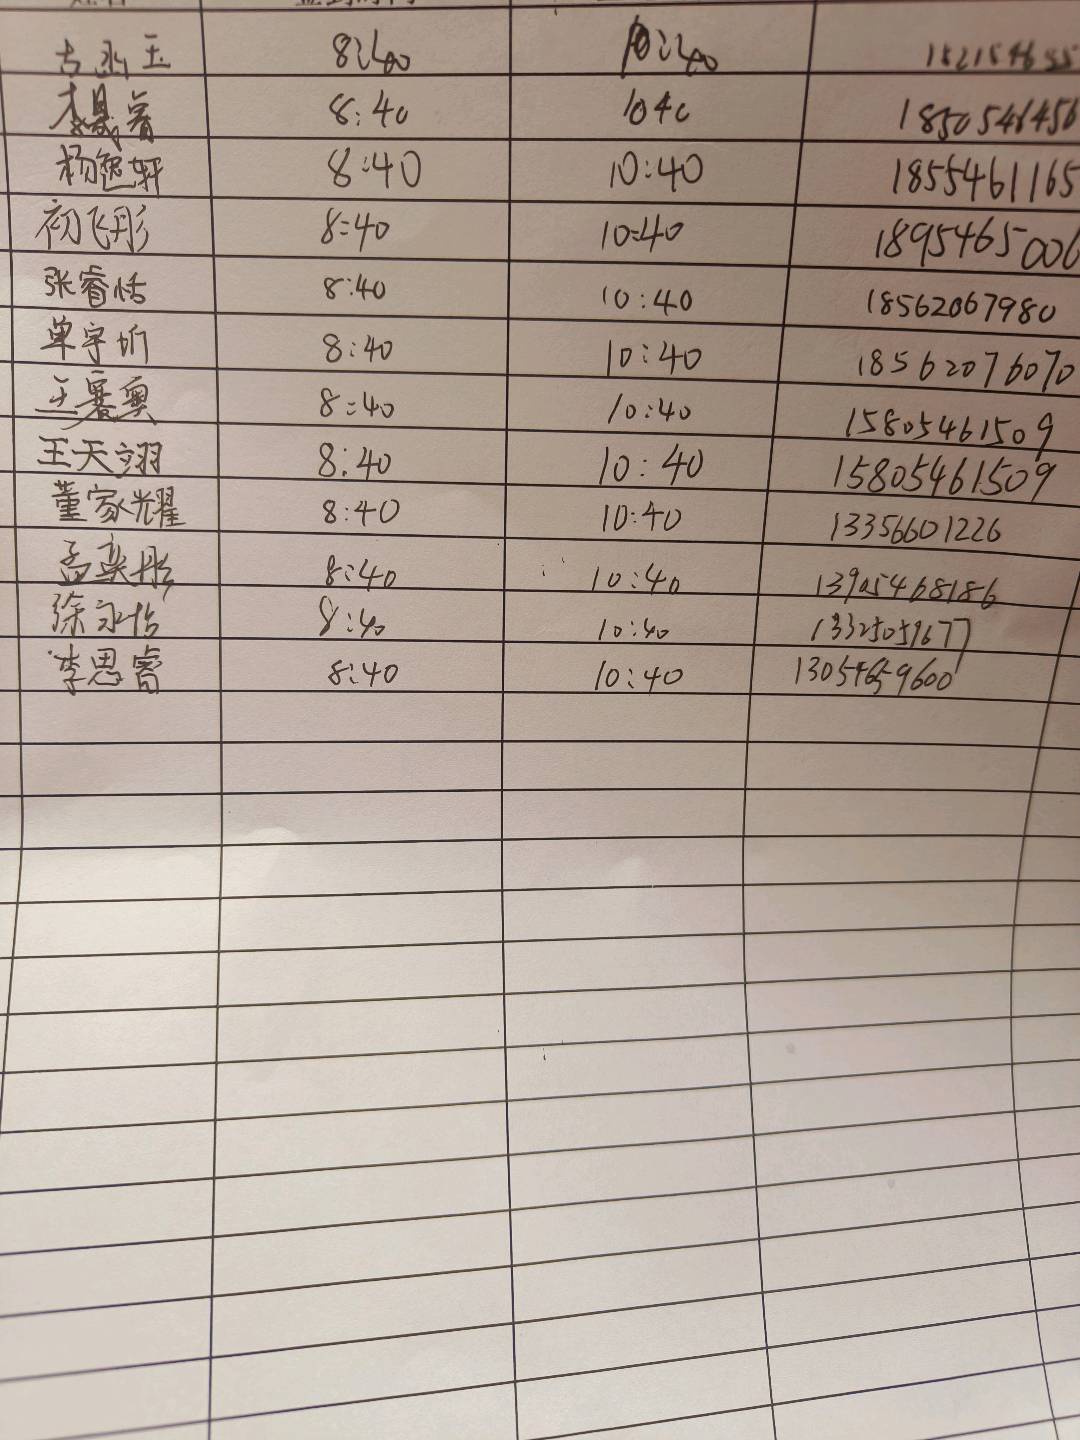 古函玉 8:40 10:40
8:40 1040
杨逸轩 8:40 10:40 1855461165
初飞彤 8:40 10:40 1895465006
张睿恬 8:40 10:40 18562067980
单宇昕 8:40 10:40 18562076070
王赛奥 8:40 10:40 15805461509
王天翊 8:40 10:40 15805461509
董家耀 8:40 10:40 13356601226
孟奕彤 8:40 10:40 13905468186
徐永怡 8:40 10:40 13325059677
李思睿 8:40 10:40 13054659600